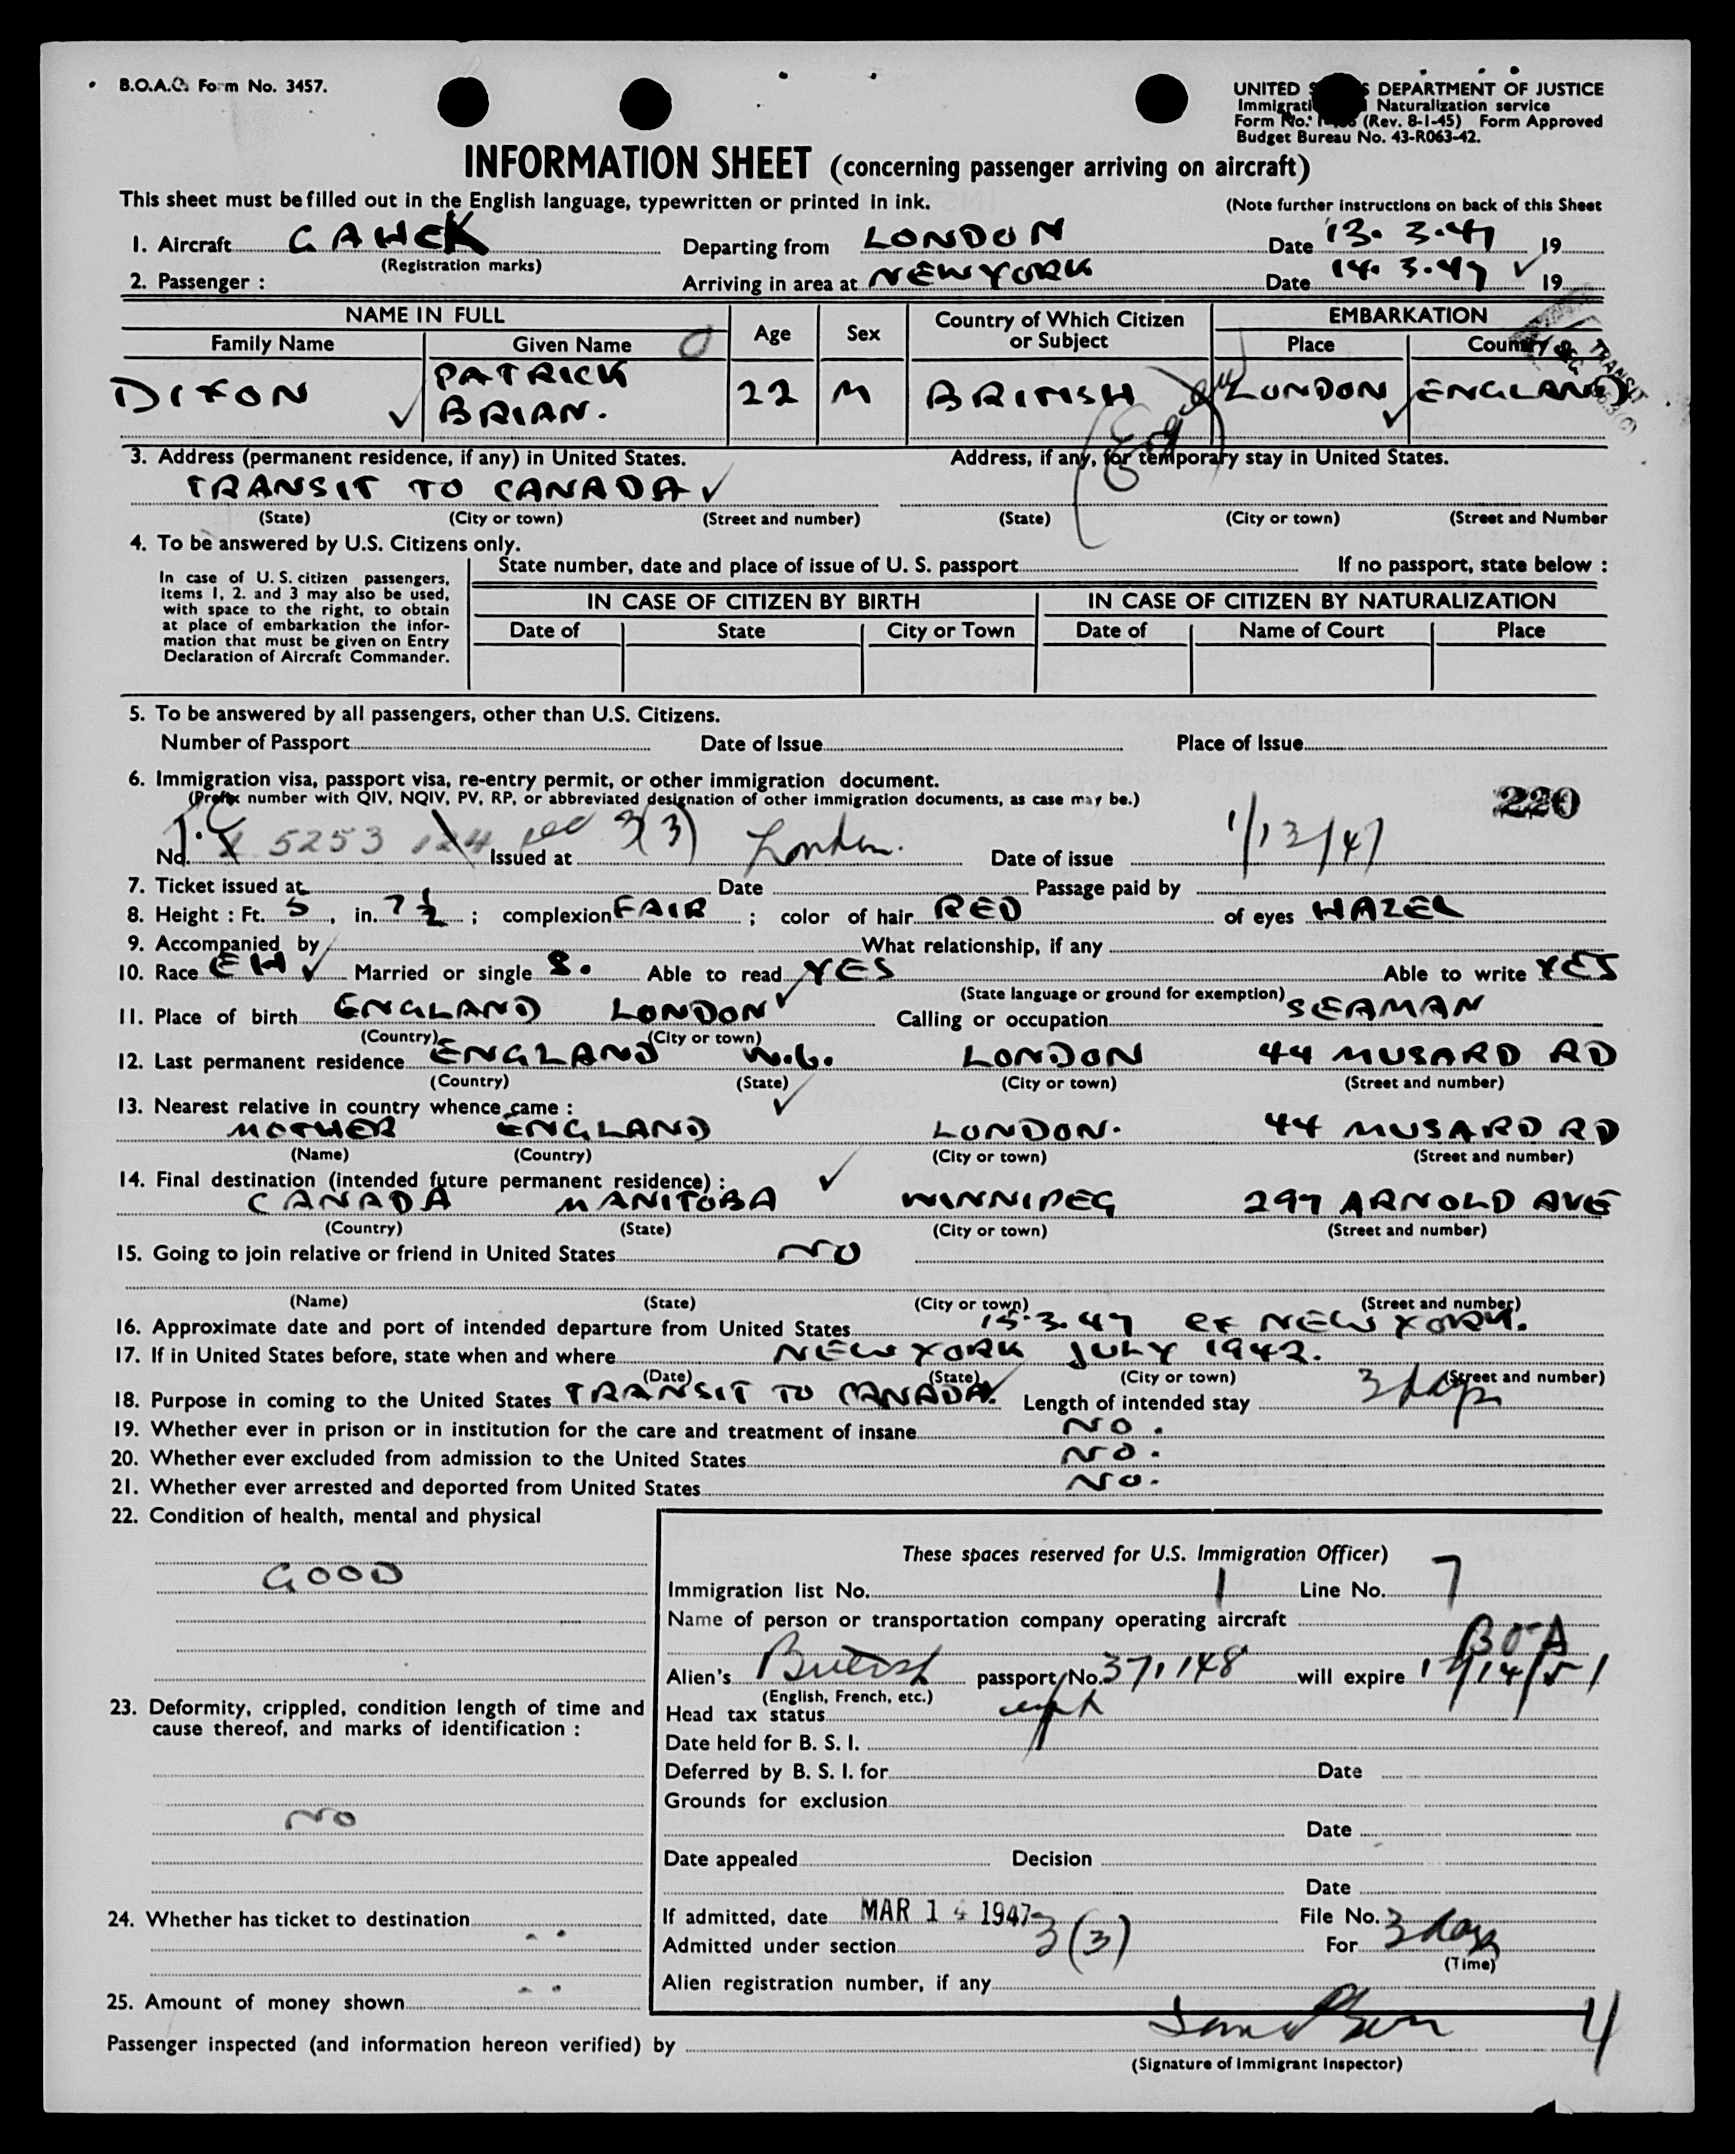 B.O.A.C. Form No. 3457.
UNITED S S DEPARTMENT OF JUSTICE
Immigrati Naturalization service
Form No. (Rev. 8-1-45) Form Approved
Budget Bureau No. 43-R063-42.
INFORMATION SHEET (concerning passenger arriving on aircraft)
This sheet must be filled out in the English language, typewritten or printed in ink.
(Note further instructions on back of this Sheet
1. Aircraft GAHCK Departing from LONDON Date 13. 3.47 19
(Registration marks)
2. Passenger : Arriving in area at NEW YORK Date 14. 3.47 19
NAME IN FULL Age Sex Country of Which Citizen or Subject EMBARKATION
Family Name Given Name Place Country
TRANSIT
DIXON PATRICK BRIAN. 22 M BRITISH LONDON ENGLAND
3. Address (permanent residence, if any) in United States. Address, if any, for temporary stay in United States.
TRANSIT TO CANADA
(State) (City or town) (Street and number) (State) (City or town) (Street and Number
4. To be answered by U.S. Citizens only.
In case of U.S. citizen passengers, items 1, 2. and 3 may also be used, with space to the right, to obtain at place of embarkation the infor-mation that must be given on Entry Declaration of Aircraft Commander.
State number, date and place of issue of U. S. passport If no passport, state below :
IN CASE OF CITIZEN BY BIRTH IN CASE OF CITIZEN BY NATURALIZATION
Date of State City or Town Date of Name of Court Place
5. To be answered by all passengers, other than U.S. Citizens.
Number of Passport Date of Issue Place of Issue
6. Immigration visa, passport visa, re-entry permit, or other immigration document.
(Prefix number with QIV, NQIV, PV, RP, or abbreviated designation of other immigration documents, as case may be.)
220
No. 5253 124 3(3) Issued at London. Date of issue 1/13/47
7. Ticket issued at Date Passage paid by
8. Height : Ft. 5, in. 7½ ; complexion FAIR ; color of hair RED of eyes HAZEL
9. Accompanied by What relationship, if any
10. Race EH Married or single S. Able to read YES Able to write YES
(State language or ground for exemption)
11. Place of birth ENGLAND LONDON Calling or occupation SEAMAN
(Country) (City or town)
12. Last permanent residence ENGLAND W.6. LONDON 44 MUSARD RD
(Country) (State) (City or town) (Street and number)
13. Nearest relative in country whence came :
MOTHER ENGLAND LONDON. 44 MUSARD RD
(Name) (Country) (City or town) (Street and number)
14. Final destination (intended future permanent residence) :
CANADA MANITOBA WINNIPEG 297 ARNOLD AVE
(Country) (State) (City or town) (Street and number)
15. Going to join relative or friend in United States NO
(Name) (State) (City or town) (Street and number)
16. Approximate date and port of intended departure from United States 15.3.47 NEW YORK.
17. If in United States before, state when and where NEW YORK JULY 1942.
(Date) (State) (City or town) (Street and number)
18. Purpose in coming to the United States TRANSIT TO CANADA. Length of intended stay 3 days
19. Whether ever in prison or in institution for the care and treatment of insane NO.
20. Whether ever excluded from admission to the United States NO.
21. Whether ever arrested and deported from United States NO.
22. Condition of health, mental and physical
GOOD
These spaces reserved for U.S. Immigration Officer)
Immigration list No. 1 Line No. 7
Name of person or transportation company operating aircraft
BOA
Alien's British passport No. 371148 will expire 12/14/51
(English, French, etc.)
23. Deformity, crippled, condition length of time and cause thereof, and marks of identification :
NO
Head tax status
Date held for B. S. I.
Deferred by B. S. I. for Date
Grounds for exclusion
Date
Date appealed Decision
Date
24. Whether has ticket to destination
If admitted, date MAR 14 1947 File No.
Admitted under section 3(3) For 3 days
(Time)
Alien registration number, if any
25. Amount of money shown
Passenger inspected (and information hereon verified) by
4
(Signature of Immigrant Inspector)